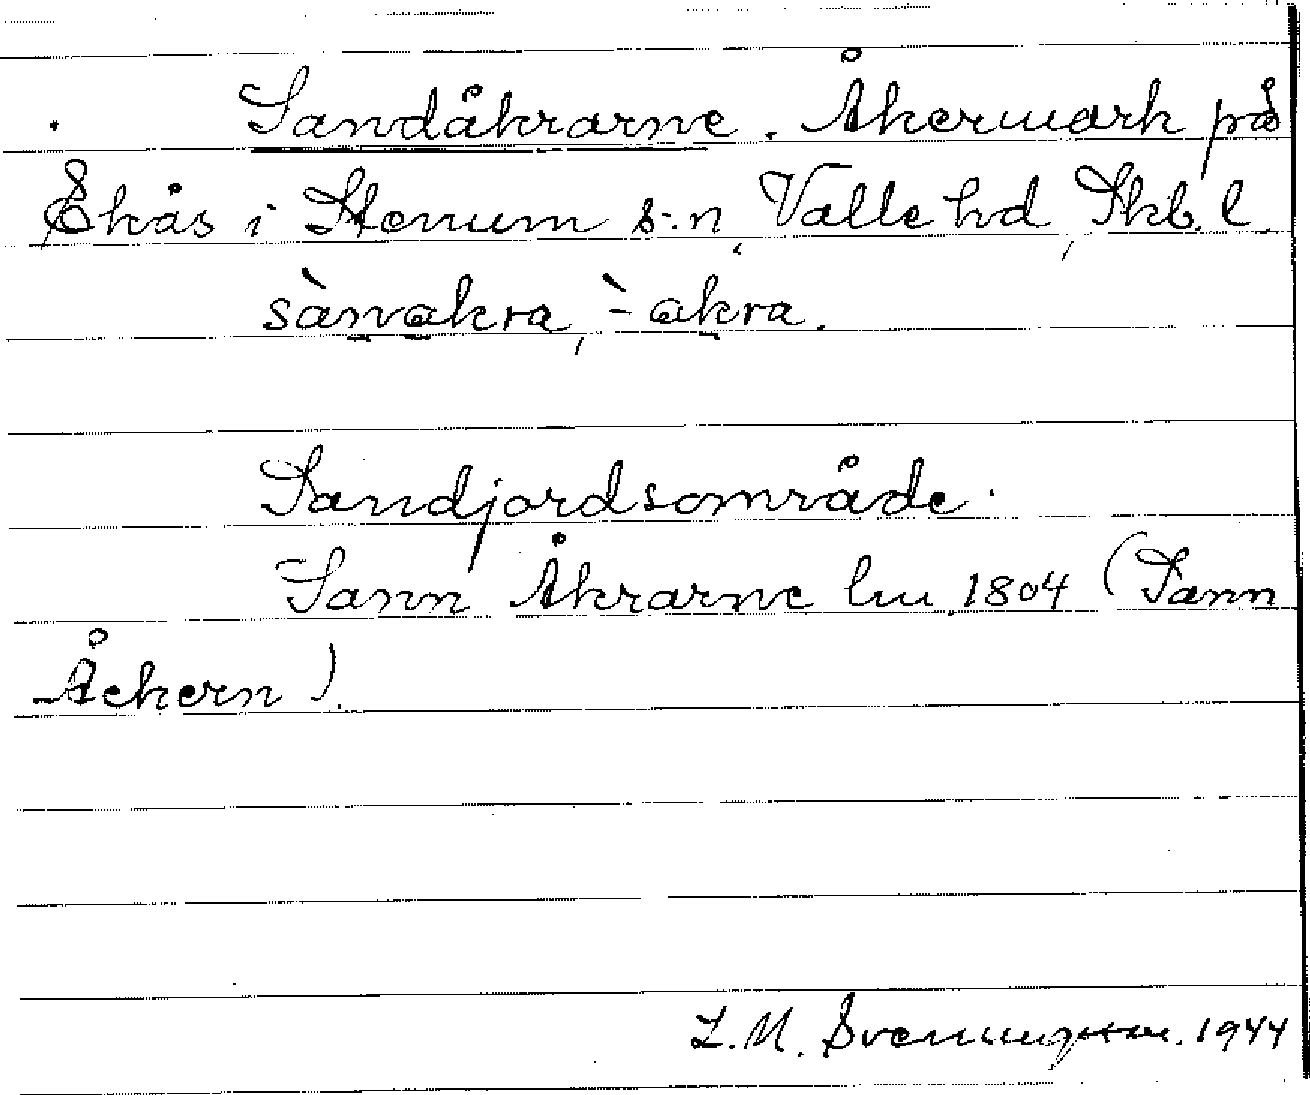 Sandåkrarne. Åkermark på
Ekås i Stenum s:n, Valle hd, Skb. l.
sànakra, `- akra.
Sandjordsområde.
Sann Åkrarne lm 1804 (Sann
Åckern).
L. M. Svenungsson. 1944